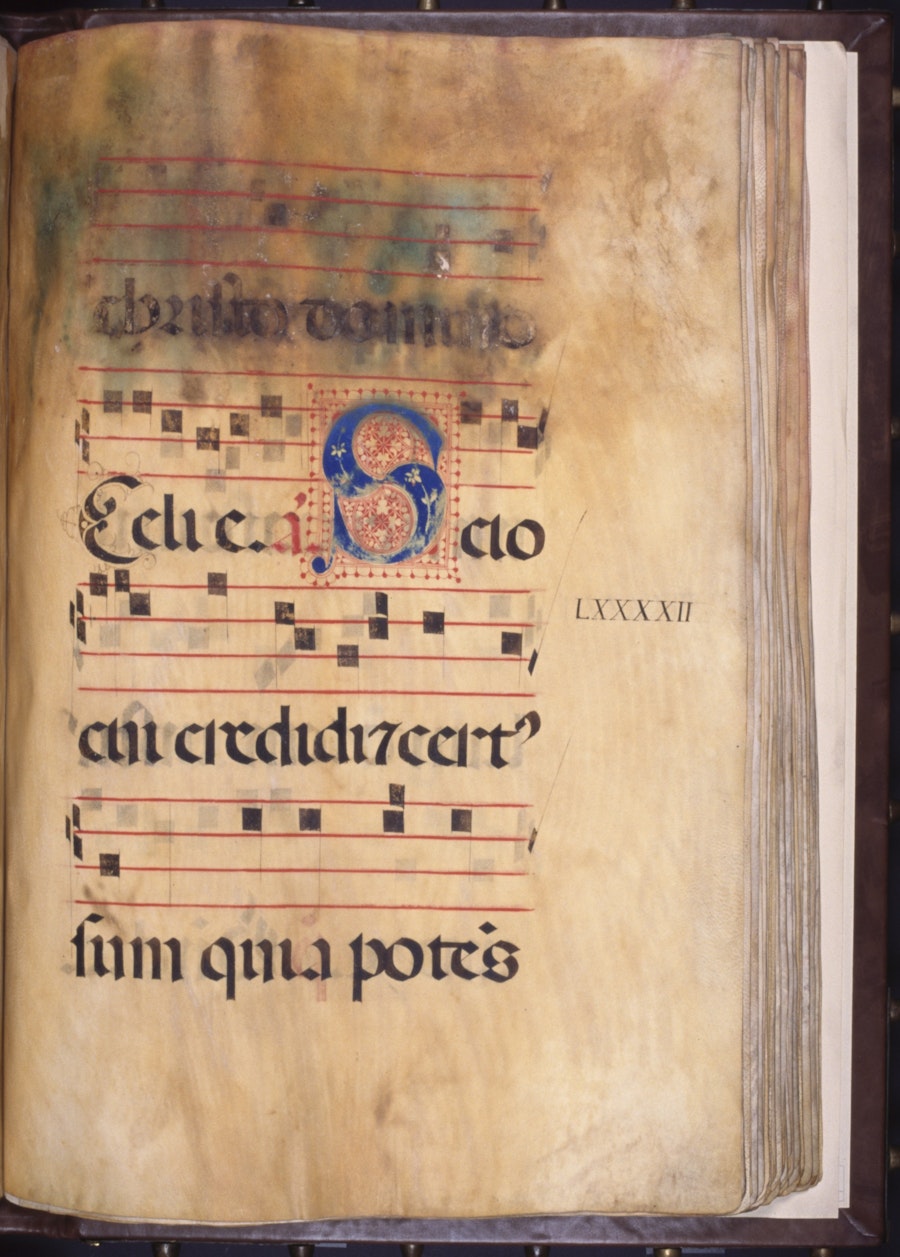 christo domino
Celi e. a. Scio
LXXXXII
cui credidi ⁊ cert⁹
sum quia potēs